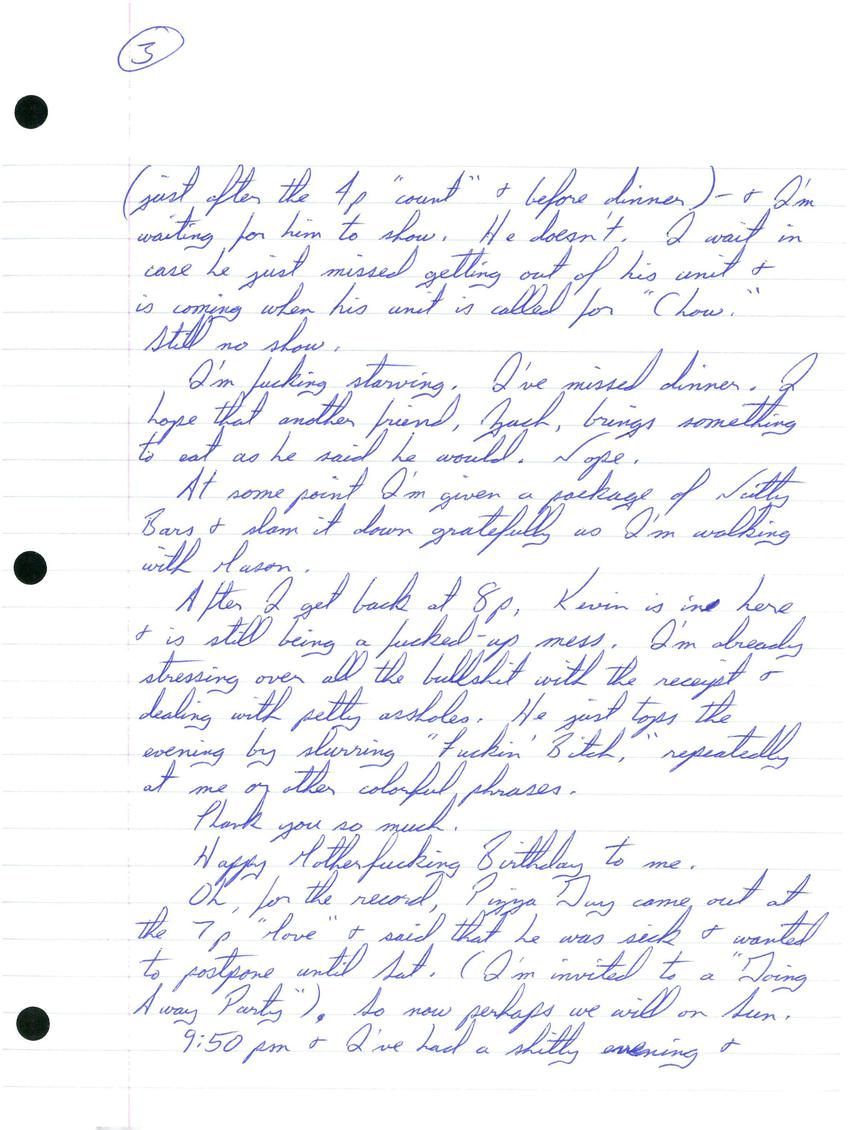 3
(just after the 4p "count" & before dinner) - & I'm
waiting for him to show. He doesn't. I wait in
case he just missed getting out of his unit &
is coming when his unit is called for "Chow."
Still no show.
I'm fucking starving. I've missed dinner. I
hope that another friend, Zach, brings something
to eat as he said he would. Nope.
At some point I'm given a package of Nutty
Bars & slam it down gratefully as I'm walking
with Mason.
After I get back at 8p, Kevin is in here
& is still being a fucked-up mess. I'm already
stressing over all the bullshit with the receipt &
dealing with petty assholes. He just tops the
evening by slurring "Fuckin' Bitch," repeatedly
at me or other colorful phrases.
Thank you so much.
Happy Motherfucking Birthday to me.
Oh, for the record, Pizza Guy came out at
the 7p "Move" & said that he was sick & wanted
to postpone until Sat. (I'm invited to a "Going
Away Party"). So now perhaps we will on Sun.
9:50 pm & I've had a shitty evening &